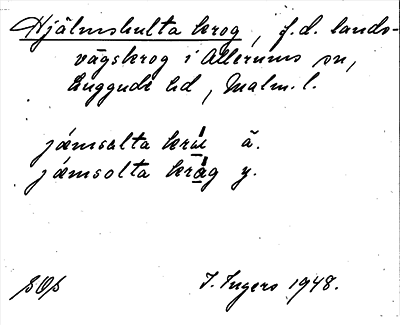 Hjälmshulta krog, f.d. lands-
vägskrog i Allerums sn,
Luggude hd, Malm. l.
jæmsalta krú ä.
jæmsolta kråg y.
SOS
I. Ingers 1948.